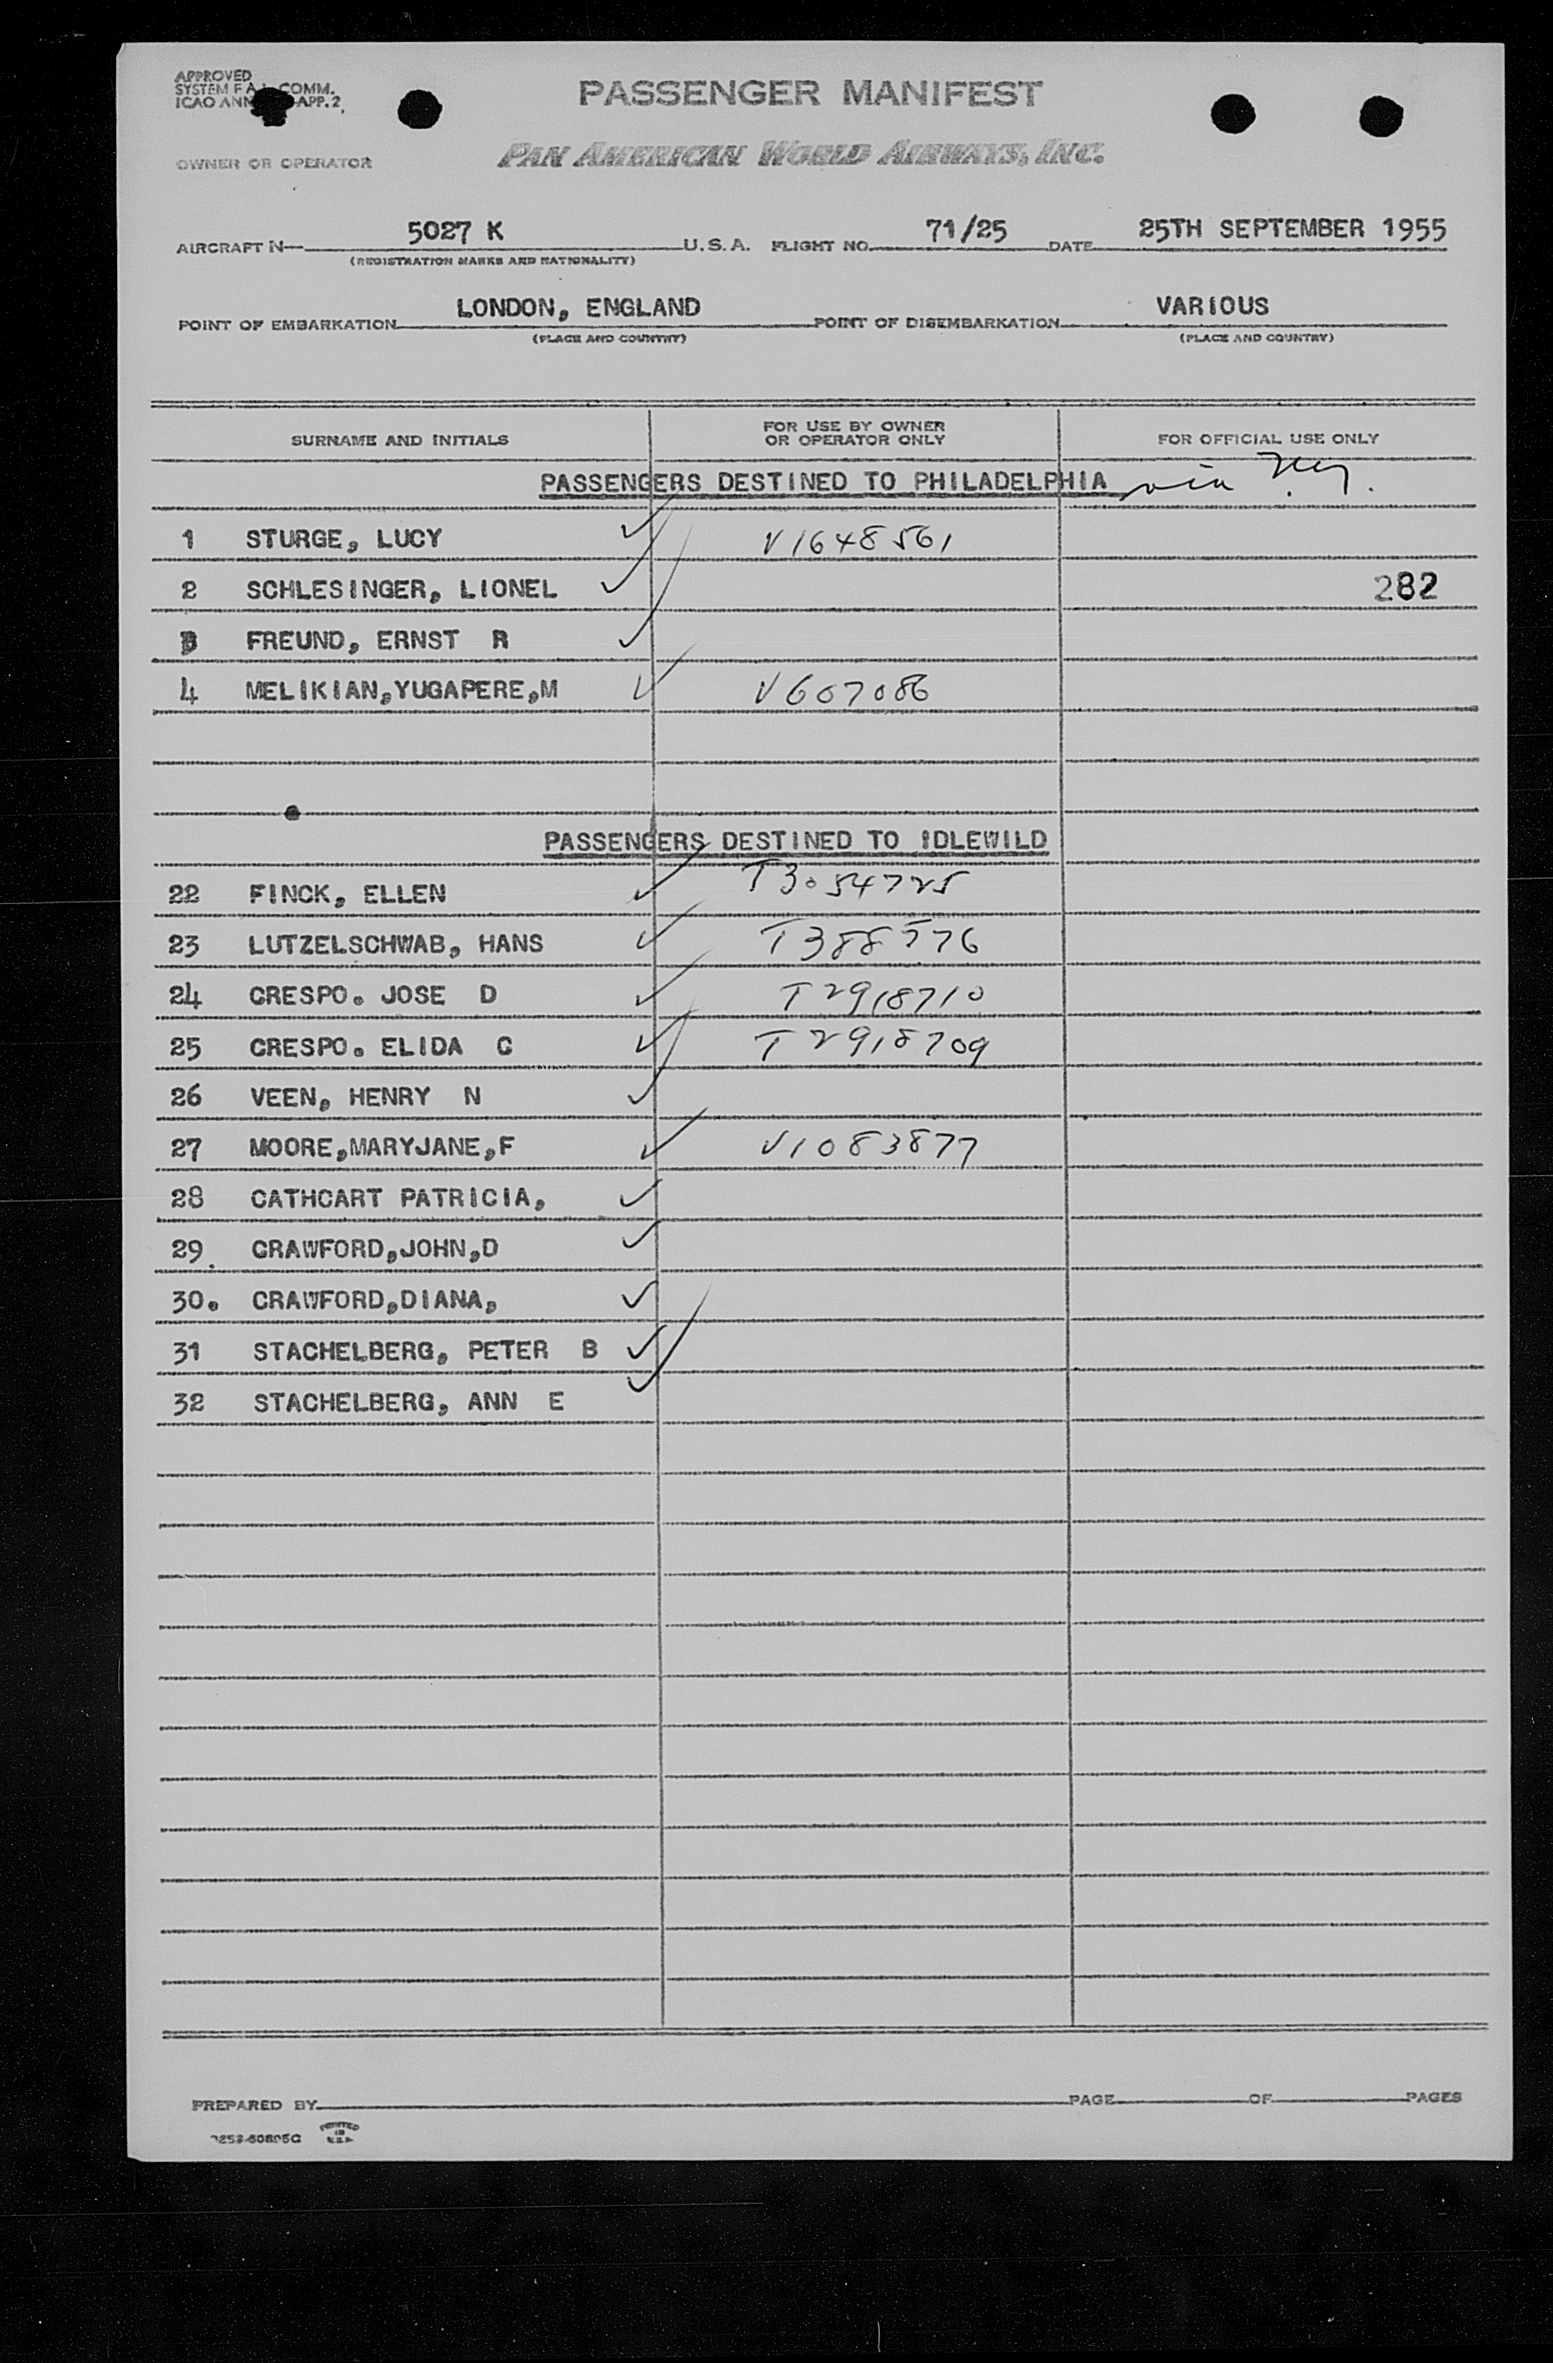 APPROVED
SYSTEM F A COMM.
ICAO ANN APP. 2
PASSENGER MANIFEST
OWNER OR OPERATOR PAN AMERICAN WORLD AIRWAYS, INC.
AIRCRAFT N 5027 K U.S.A. FLIGHT NO. 71/25 DATE 25TH SEPTEMBER 1955
(REGISTRATION MARKS AND NATIONALITY)
POINT OF EMBARKATION LONDON, ENGLAND POINT OF DISEMBARKATION VARIOUS
(PLACE AND COUNTRY) (PLACE AND COUNTRY)
SURNAME AND INITIALS FOR USE BY OWNER OR OPERATOR ONLY FOR OFFICIAL USE ONLY
PASSENGERS DESTINED TO PHILADELPHIA via N.Y.
1 STURGE, LUCY V1648561
2 SCHLESINGER, LIONEL 282
3 FREUND, ERNST R
4 MELIKIAN,YUGAPERE,M V607086
PASSENGERS DESTINED TO IDLEWILD
22 FINCK, ELLEN T3054725
23 LUTZELSCHWAB, HANS T388576
24 CRESPO. JOSE D T2918710
25 CRESPO. ELIDA C T2918709
26 VEEN, HENRY N
27 MOORE,MARYJANE,F V1083877
28 CATHCART PATRICIA,
29. CRAWFORD,JOHN,D
30. CRAWFORD,DIANA,
31 STACHELBERG, PETER B
32 STACHELBERG, ANN E
PREPARED BY PAGE OF PAGES
PRINTED IN U.S.A.